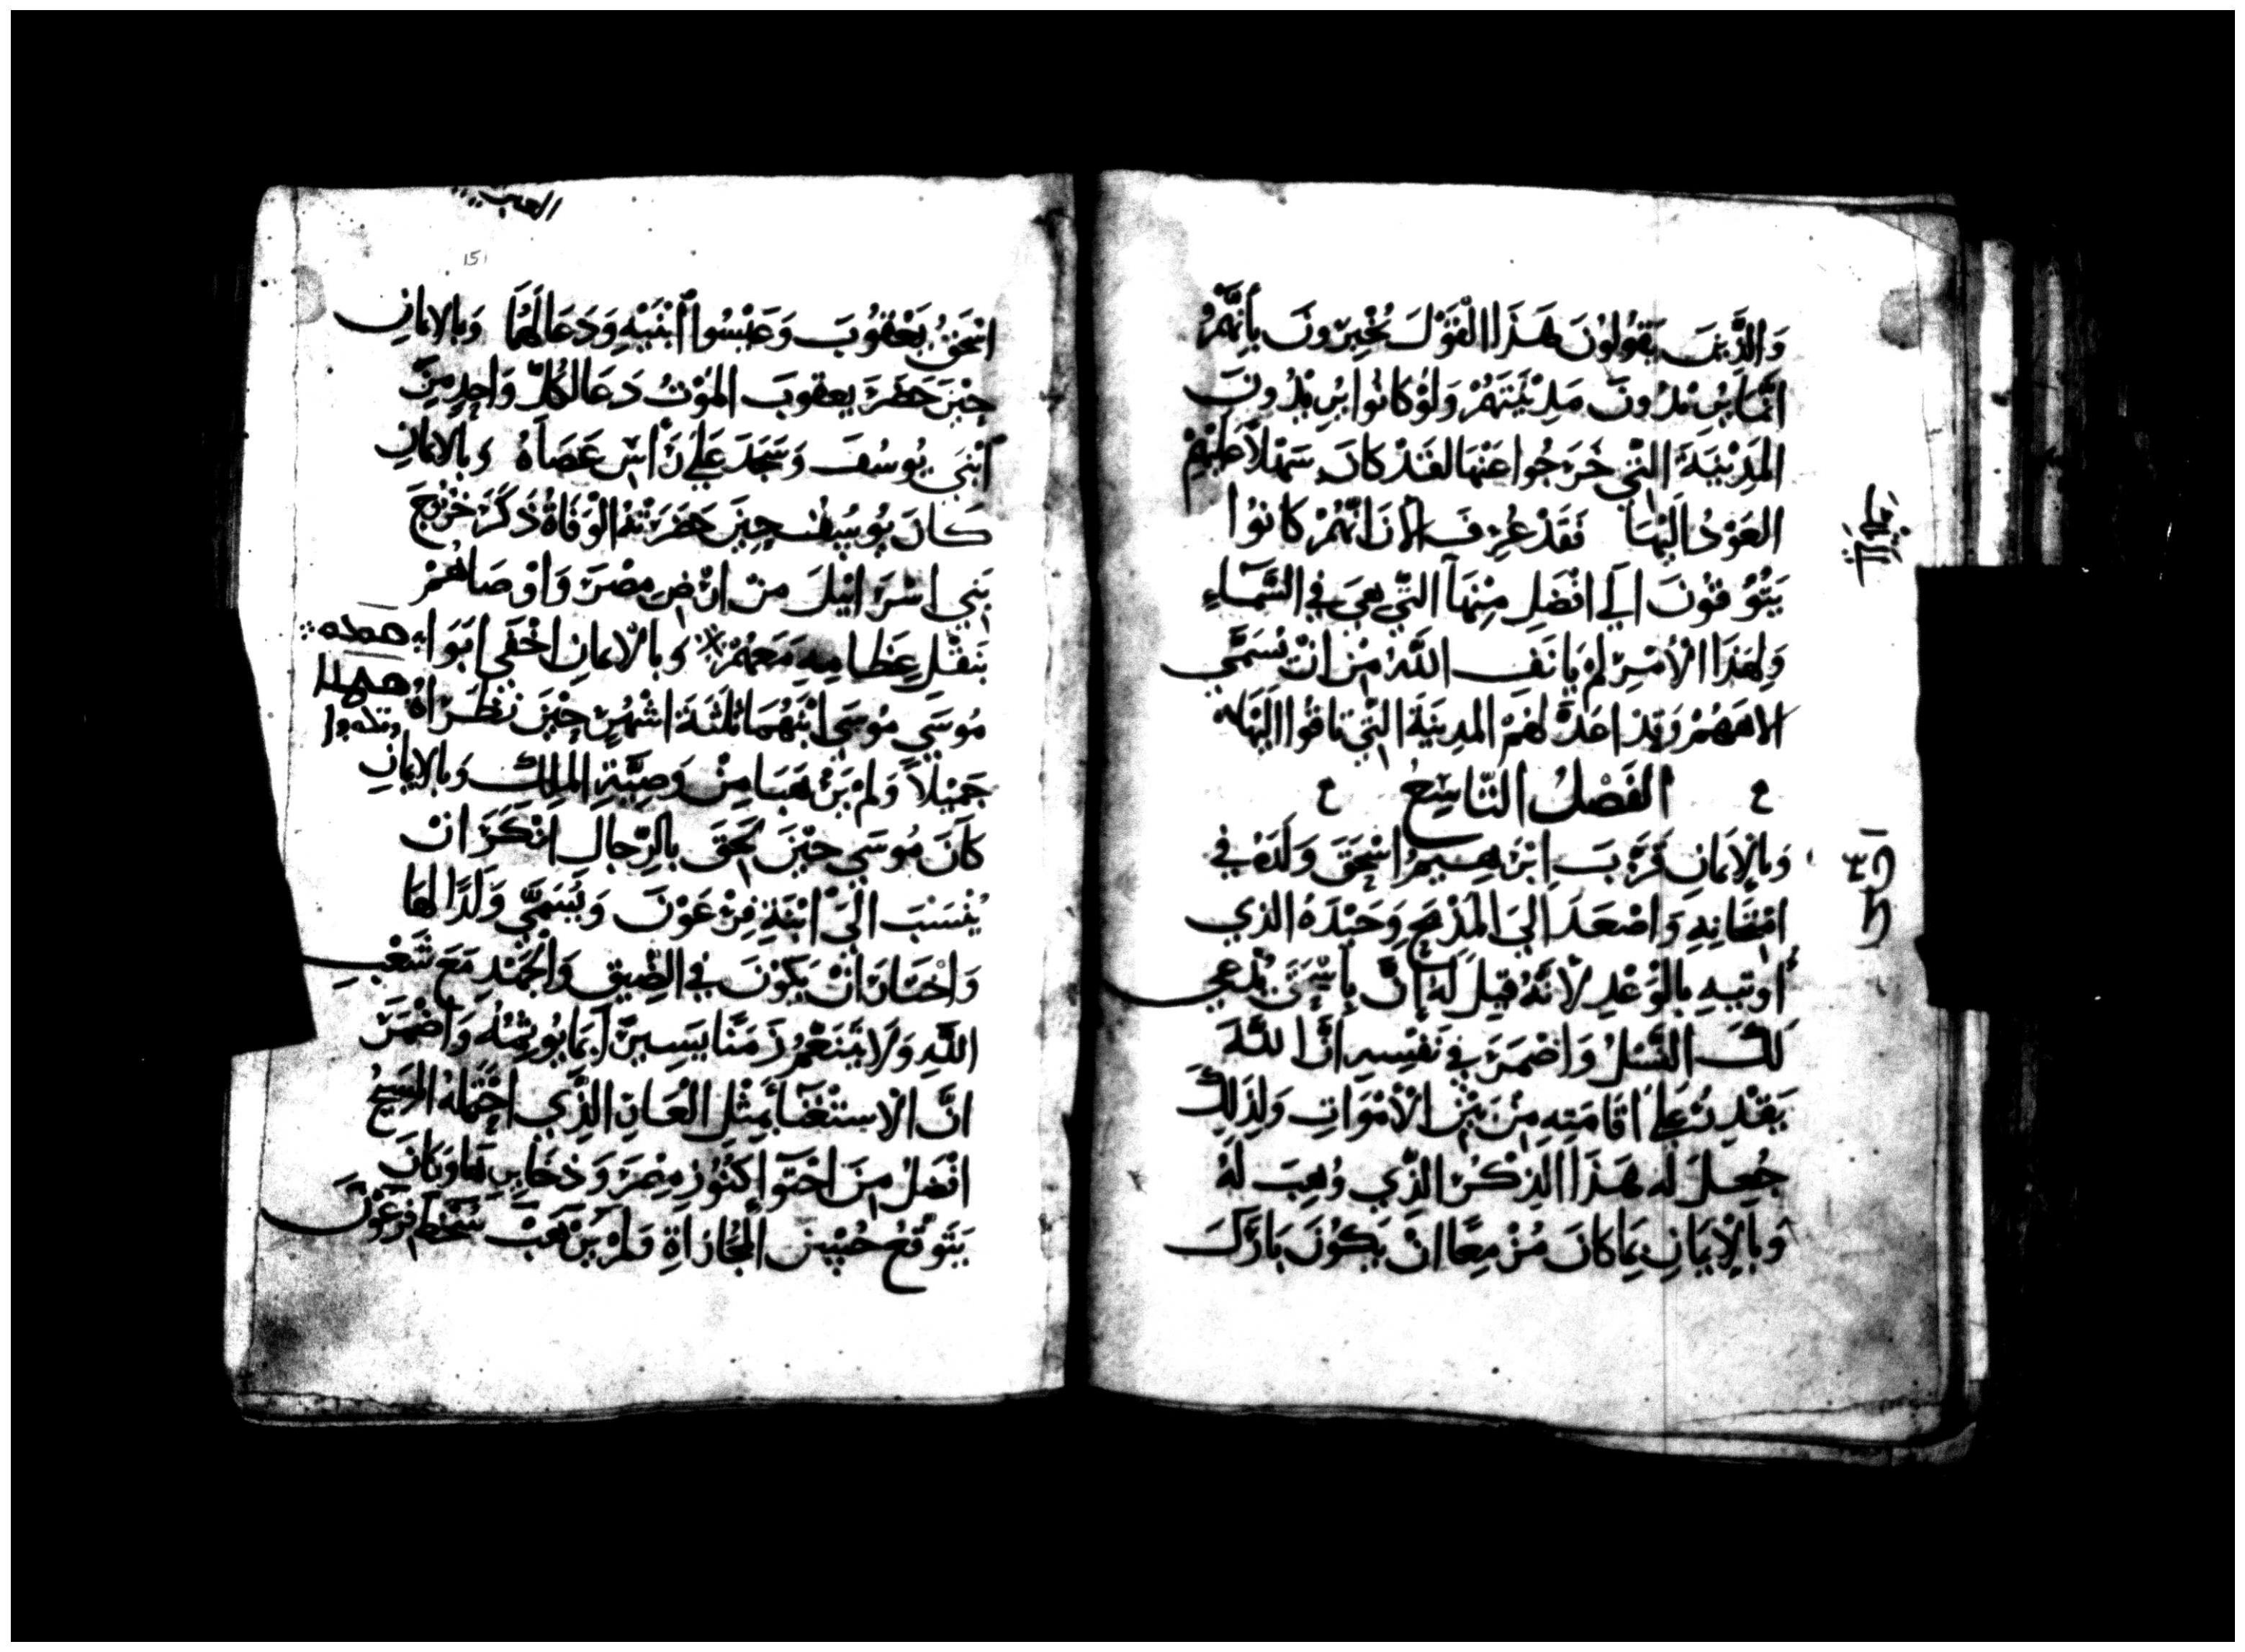 وَالذَّينَ يَقُولُونَ هَذَا الْقَوْلَ يُخْبِرُونَ بِأَنَّهُمْ
انَّمَا يُرِيْدُونَ مَدِيْنَتَهُمْ وَلَوْ كَانُوا يُرِيْدُونَ
المَدِيْنَةَ التَّي خَرَجُوا عَنْهَا لقَدْ كَانَ سَهْلاً عَلَيْهِمْ
العَوْدُ الَيْهَا فَقَدْ عُرِفَ الانَ انَّهُمْ كَانُوا
يَتُوقُونَ الَي افْضَلِ مِنْهَا التَّي هِيَ فِي السَّمَاءِ
وَلِهَذَا الْأَمْرِ لَمْ يَانَف اللَّهُ مِنْ انْ يُسَمَّي
الاهَهُمْ وَقَدْ اعَدَّ لَهُمْ المَدِينَةَ التَّي تَاقُوا الَيْهَا
الفَصْلُ التَّاسِعُ
وَبِالإِيمَانِ قَرَّبَ ابْرَهِيمُ اسْحَقَ وَلَدَهُ فِي
امْتِحَانِهِ وَاصْعَدَ الَيَ المَذْبَحِ وَحَيْدَهُ الذي
أُوتِيهِ بِالْوَعْدِ لأَنَّهُ قِيلَ لَهُ إنَّ بِإِسْحَقَ يُدْعَي
لَكَ النَّسْلُ وَاضْمَرَ فِي نَفْسِهِ انَّ اللَّهَ
يَقْدِرُ عَلَي اقَامَتِهِ مِنْ بَيْنِ الْأَمْوَاتِ وَلِذَلِكَ
جُعِلَ لَهُ هَذَا الذِكْرُ الذَّي وُهِبَ لَهُ
وَبِالإِيمَانِ بِمَا كَانَ مُزْمِعًا انْ يَكُونَ بَارَكَ
اسْحَقُ يَعْقُوبَ وَعَيْسُوا ابْنَيْهِ وَدَعَا لَهُمَا وَبالايمانِ
حِيْنَ حَضَرَ يعقوبَ المَوْتُ دَعَا لِكُلِّ وَاحِدٍ مِنَ
ابْنَي يُوسُفَ وَسَجَدَ عَلَي رَاسِ عَصَاهُ وَبالايمَانِ
كَانَ يُوسُفُ حِيْنَ حَضَرَتْهُ الْوَفَاةُ ذَكَرَ خُرُوجَ
بَنِي اسْرَائِيْلَ مِنْ ارْضِ مِصْرَ وَاوْصَاهُمْ
بِنَقْلِ عِظَامِهِ مَعَهُمْ وَبِالْايمَانِ اخْفَي ابَوَا
مُوسَي مُوسَي ابْنَهُمَا ثَلَثَةَ اشْهُرٍ حِيْنَ نَظَرَاهُ
جَمِيْلاً وَلَمْ يَرْهَبَا مِنْ وَصِيَّةِ المَلِكِ وَبالايمَانِ
كَانَ مُوسَي حِيْنَ لَحِقَ بِالرِّجَالِ انْكَرَ انْ
يُنْسَبَ الَي ابْنَةِ فِرْعَوْنَ وَيُسَمَّي وَلَدًا لَهَا
وَاخْتَارَ انْ يَكُوْنَ فِي الضِيقِ وَالْجَهْدِ مَعَ شَعْبِ
اللَّهِ وَلَا يَتَنَعَّمُ زَمَنًا يَسِيرًا بِمَا يُورِثُهُ وَاضْمَرَ
انَّ الْاسْتِغْنَا بِمَثْلِ الْعَارِ الذَّي احْتَمَلَهُ المَسِيحُ
افْضَلُ مِنَ احْتِوَا كُنُوزِ مِصْرَ وَذَخَايِرِهَا وَكَانَ
يَتَوَقَّعُ حُسْنَ الْمُجَازَاةِ وَلَمْ يَرْهَبْ سُخْطَ فِرْعَوْنَ